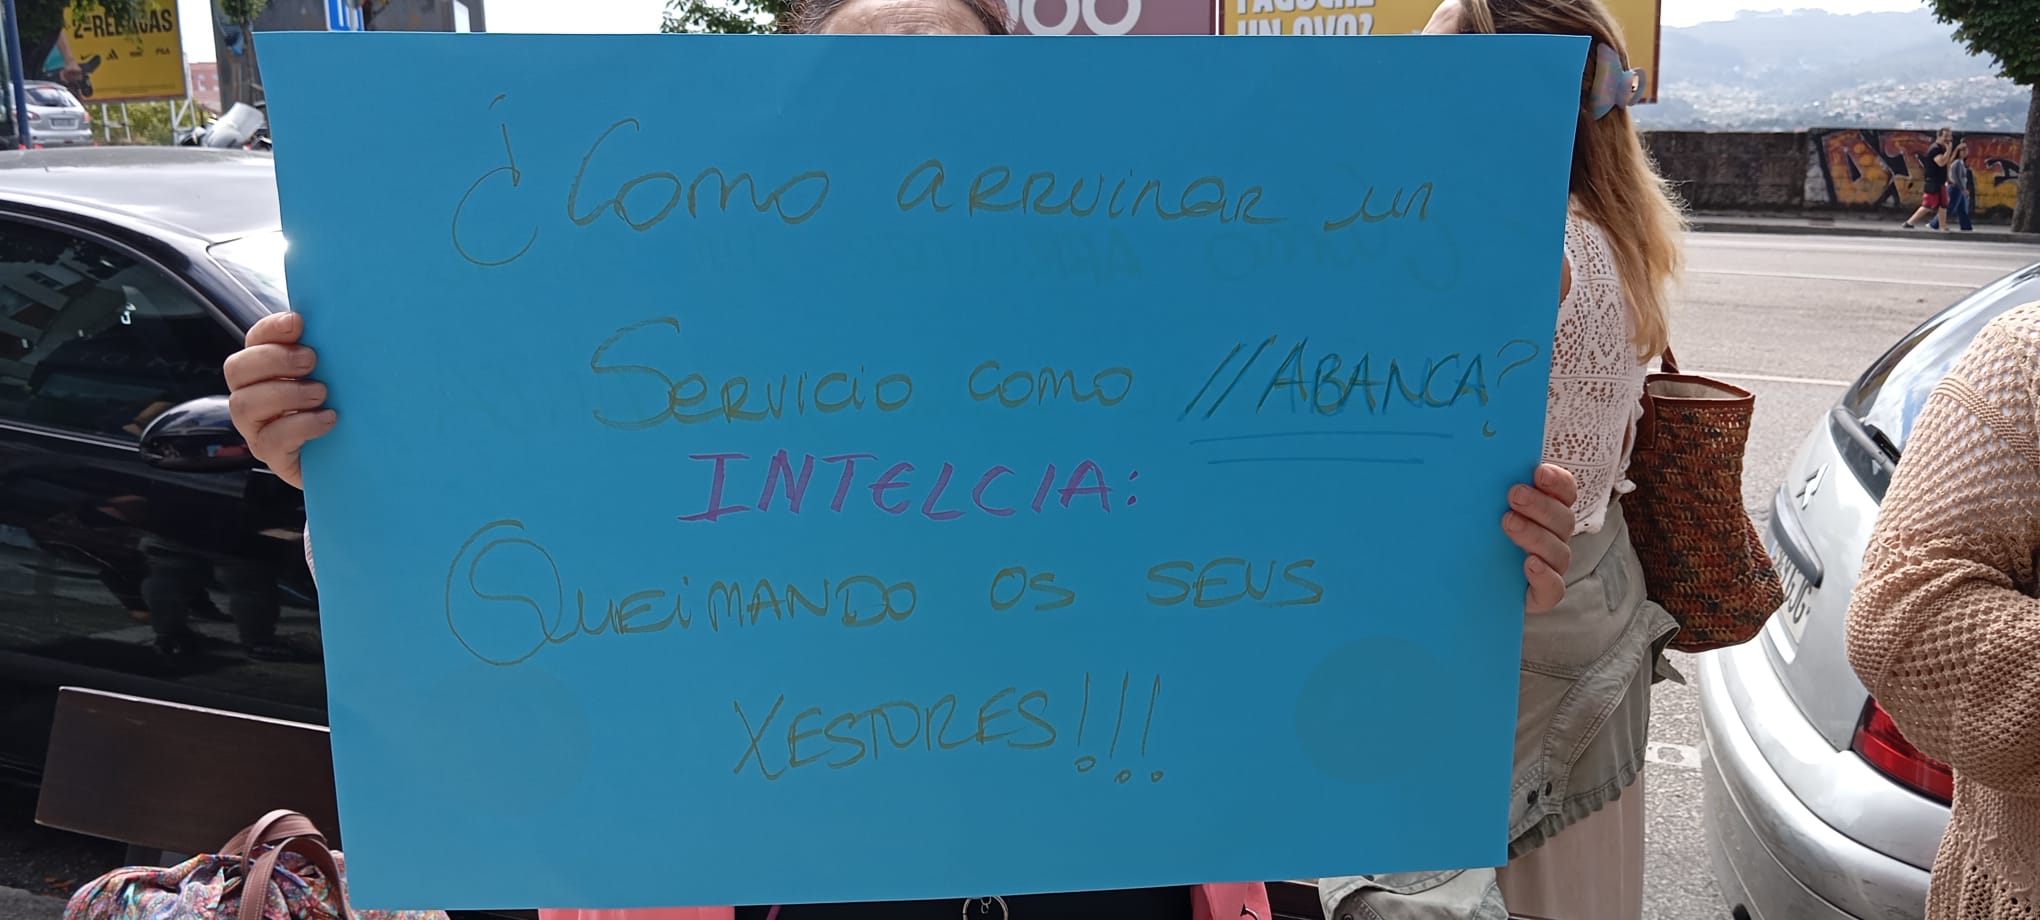 2ªS REBAIXAS
UN OVO?
¿Como arruinar un
Servicio como //ABANCA?
INTELCIA:
QUEIMANDO OS SEUS
XESTORES!!!